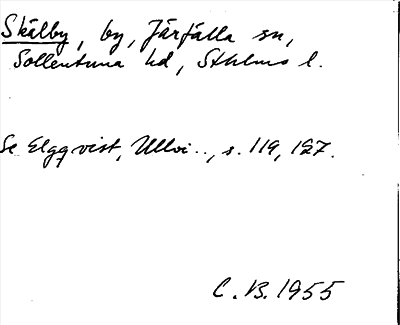 Skälby, by, Järfälla sn,
Sollentuna hd, Sthlms l.
Se Elgqvist, Ullvi.., s. 119, 127.
C. B. 1955